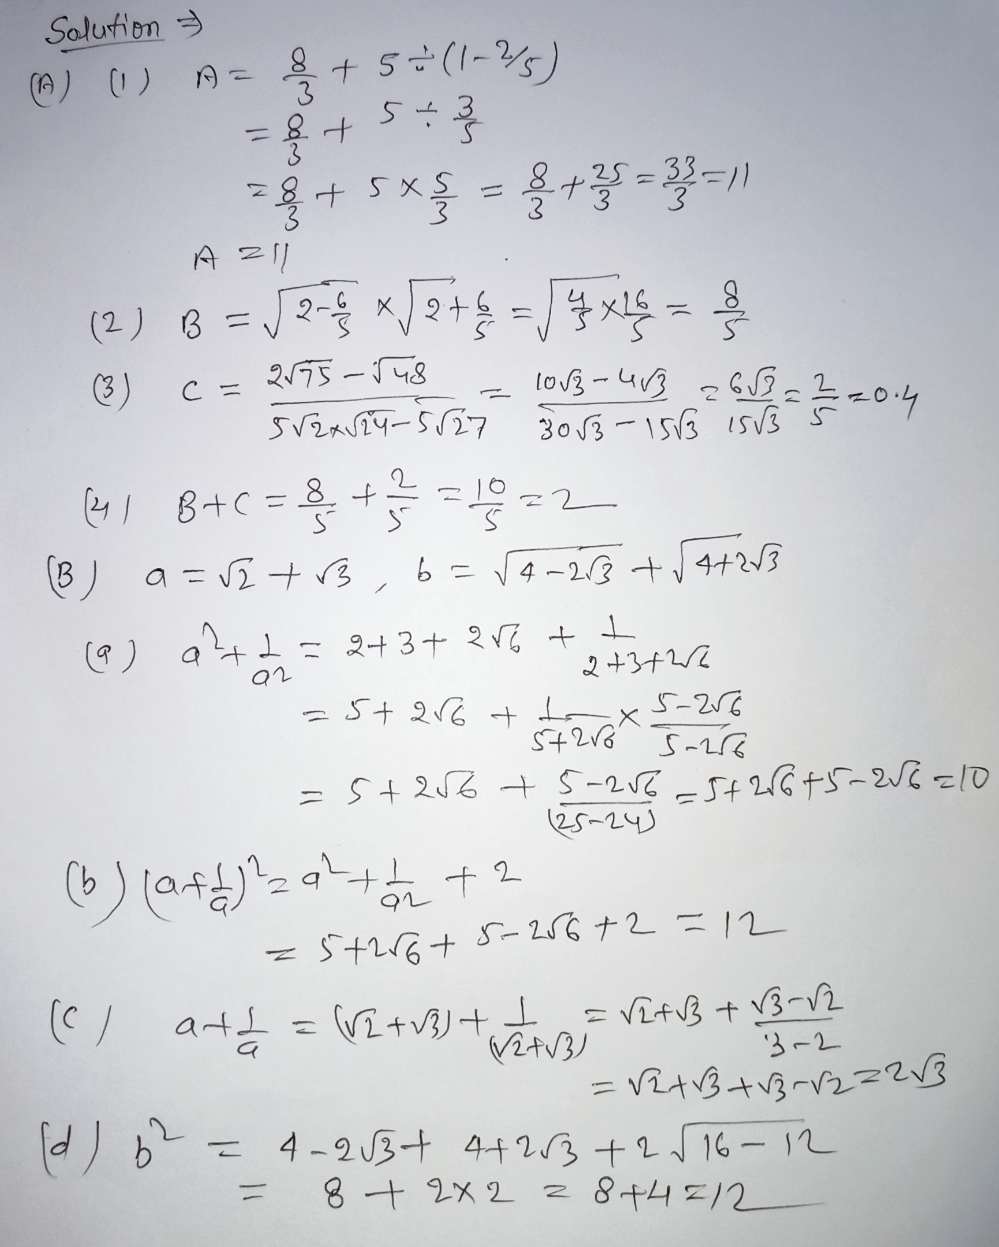 Solution ⇒
(A) (1) A = 8/3 + 5 ÷ (1 - 2/5)
= 8/3 + 5 ÷ 3/5
= 8/3 + 5 × 5/3 = 8/3 + 25/3 = 33/3 = 11
A = 11
(2) B = √(2-6/5) × √(2+6/5) = √(4/5 × 16/5) = 8/5
(3) C = (2√75 - √48)/(5√2×√24 - 5√27) = (10√3 - 4√3)/(30√3 - 15√3) = 6√3/15√3 = 2/5 = 0.4
(4) B+C = 8/5 + 2/5 = 10/5 = 2
(B) a = √2 + √3 , b = √(4-2√3) + √(4+2√3)
(a) a² + 1/a² = 2+3+2√6 + 1/(2+3+2√6)
= 5+2√6 + 1/(5+2√6) × (5-2√6)/(5-2√6)
= 5+2√6 + (5-2√6)/(25-24) = 5+2√6+5-2√6 = 10
(b) (a+1/a)² = a² + 1/a² + 2
= 5+2√6 + 5-2√6 + 2 = 12
(c) a+1/a = (√2+√3) + 1/(√2+√3) = √2+√3 + (√3-√2)/(3-2)
= √2+√3+√3-√2 = 2√3
(d) b² = 4-2√3 + 4+2√3 + 2√(16-12)
= 8 + 2×2 = 8+4 = 12